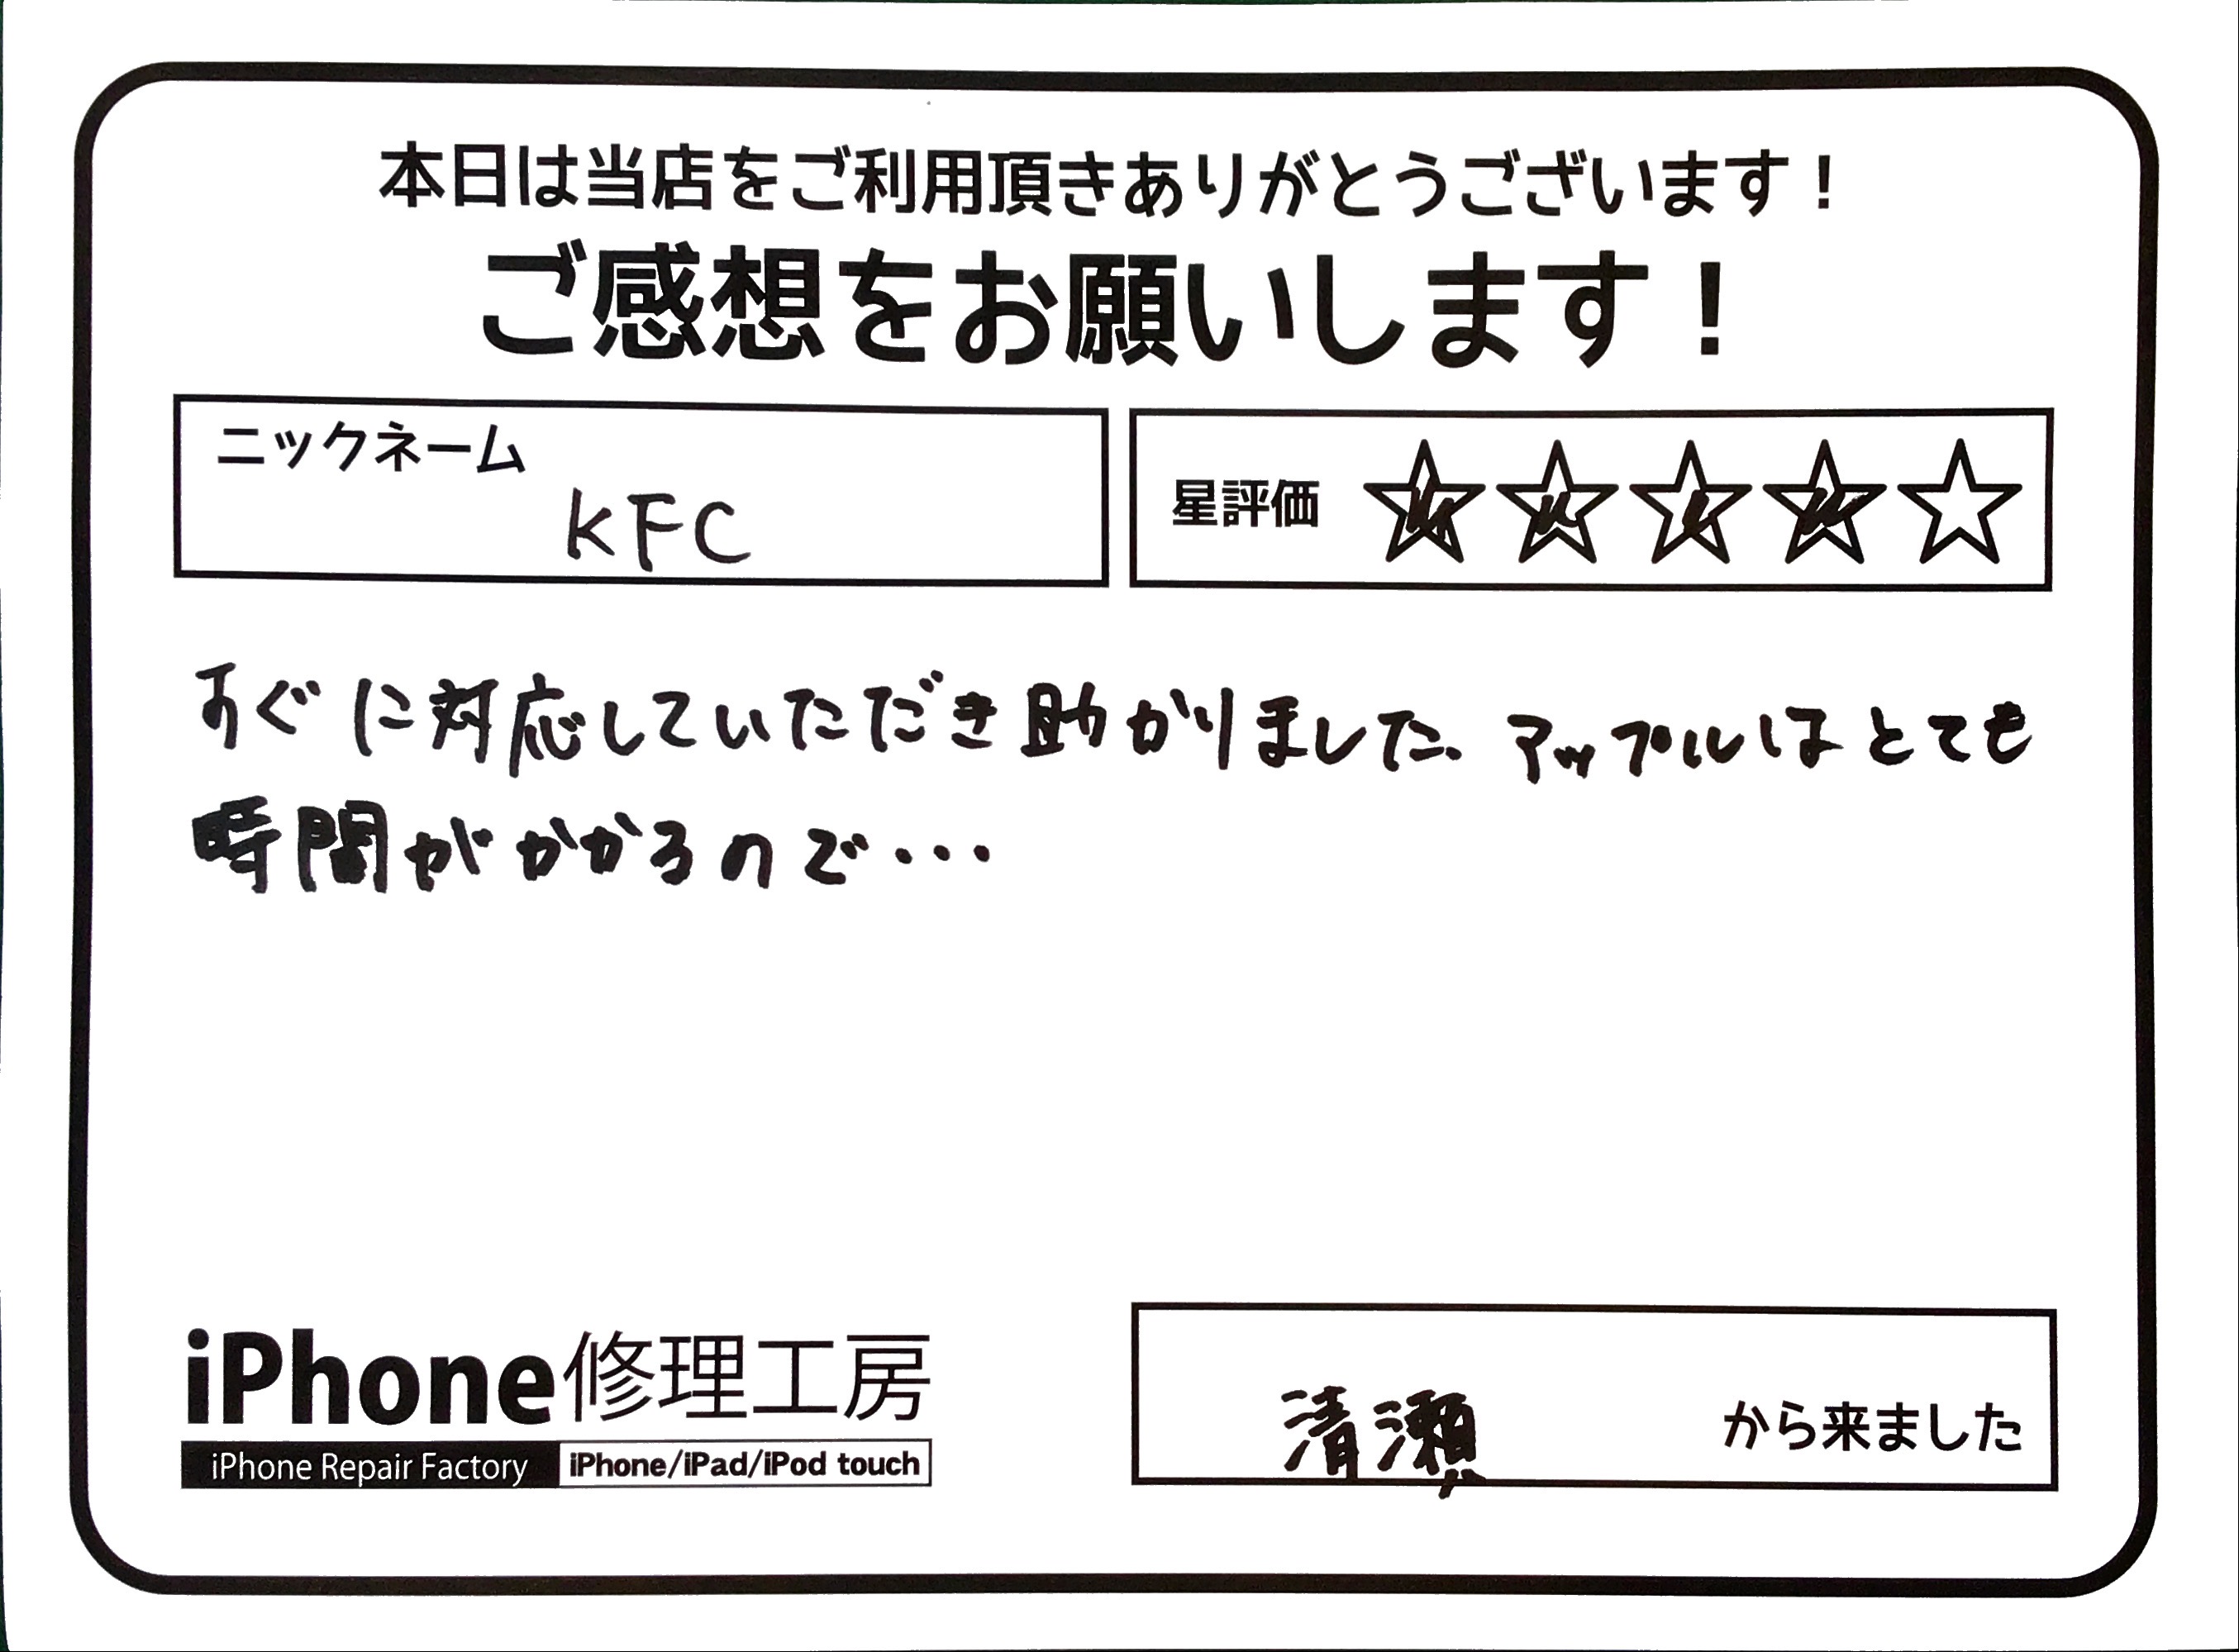 本日は当店をご利用頂きありがとうございます！
ご感想をお願いします！
ニックネーム
KFC
星評価 ★★★★☆
すぐに対応していただき助かりました。アップルはとても
時間がかかるので・・・
iPhone修理工房
iPhone Repair Factory iPhone/iPad/iPod touch
清瀬 から来ました